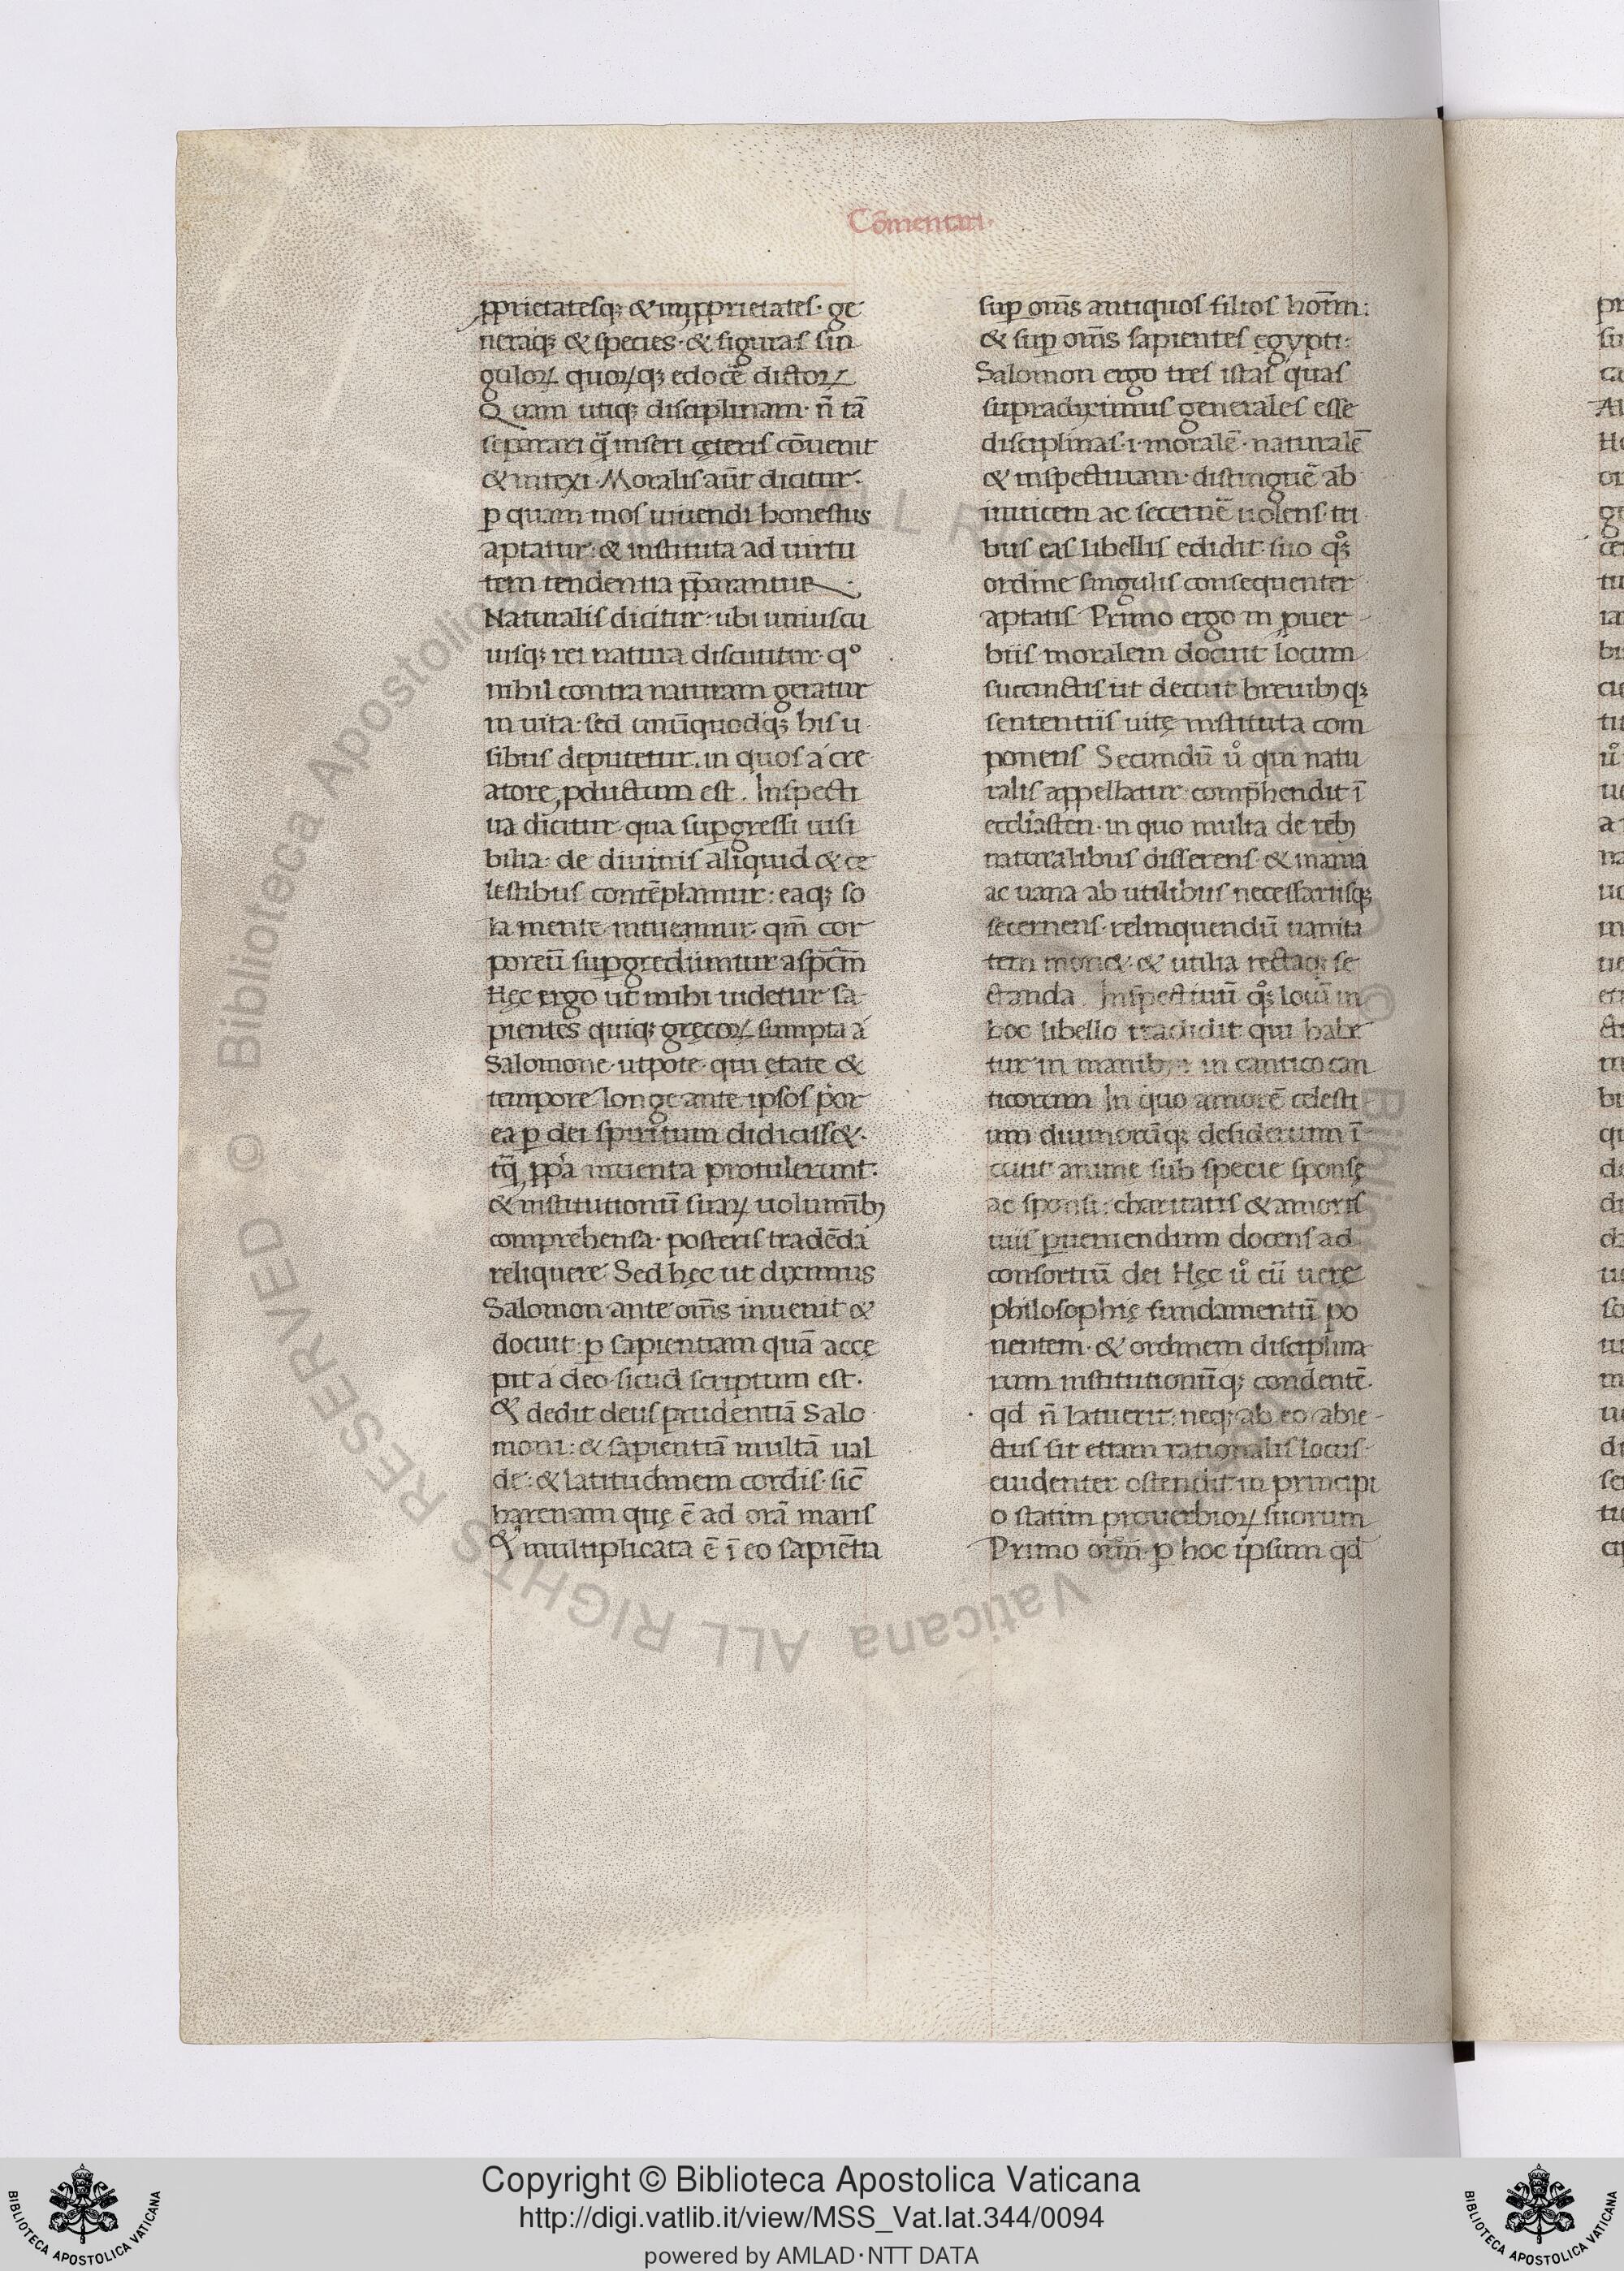 Cōmentari·
ꝓprietatesq; & imꝓprietates· ge
neraq; & species· & figuras sin
gulorꝝ quorꝝq; edocēt dictorꝝ
Quam utiq; disciplinam· n̄ tā
separari q̄ inseri ceteris cōuenit
& intexi· Moralis aūt dicitur·
ꝑ quam mos uiuendi honestus
aptatur· & instituta ad uirtu
tem tendentia p̄parantur
Naturalis dicitur· ubi uniuscu
iusq; rei natura discutitur· qº
nihil contra naturam geratur
in uita· sed unūquodq; his u
sibus deputetur, in quos a cre
atore ꝓductum est. Inspecti
ua dicitur qua suꝑgressi uisi
bilia: de diuinis aliquid & ce
lestibus contēplamur: eaq; so
la mente intuemur· qm̄ cor
poreū suꝑgrediuntur aspc̄m̄
Hęc ergo ut mihi uidetur sa
pientes quiq; grecorꝝ sumpta a
Salomone· utpote· qui etate &
tempore longe ante ipsos p̍or
ea ꝑ dei spiritum didicisset·
tq̄ ꝓp̍a inuenta protulerunt·
& institutionū suarꝝ uoluminib;
comprehensa· posteris tradēda
reliquere Sed hęc ut diximus
Salomon ante om̄s inuenit &
docuit· ꝑ sapientiam quā acce
pit a deo· sicud scriptum est·
Et dedit deus prudentiā Salo
moni: & sapientiā multā ual
de: & latitudinem cordis· sic̄
harenam quę ē ad orā maris
Et multiplicata ē ī eo sapiētia
suꝑ om̄s antiquos filios hom̄:
& suꝑ om̄s sapientes egypti:
Salomon ergo tres istas quas
supradiximus generales esse
disciplinas· i· moralē· naturalē
& inspectiuam· distinguē ab
inuicem ac secernē uolens· tri
bus eas libellis edidit· suo qͦ;
ordine singulis consequenter
aptatis Primo ergo in ꝓuer
biis· moralem docuit locum
succinctis ut decuit breuib; q;
sententiis uitę instituta com
ponens Secundū ů qui natu
ralis appellatur· comp̄hendit ī
eccl̍iasten· in quo multa de reb;
naturalibus disserens· & inania
ac uana ab utilibus necessariisq;
secernens· relinquendū uanita
tem monet· & utilia rectaq; se
ctanda. Inspectiuū qͦ; locū in
hoc libello tradidit qui habe
tur in manib; in cantico can
ticorum In quo amorē celesti
um diuinorūq; desiderium ī
cutit anime sub specie sponsę
ac sponsi: charitatis & amoris
uiis ꝑueniendum docens ad
consortiū dei Hęc ů eū uere
philosophię fundamentū po
nentem· & ordinem disciplina
rum institutionūq; condentē·
qd n̄ latuerit· neq; ab eo abie
ctus sit etiam rationalis locus·
euidenter ostendit in principi
o statim prouerbiorꝝ suorum
Primo om̄· ꝑ hoc ipsum qd
Copyright © Biblioteca Apostolica Vaticana
http://digi.vatlib.it/view/MSS_Vat.lat.344/0094
powered by AMLAD·NTT DATA
BIBLIOTECA APOSTOLICA VATICANA
BIBLIOTECA APOSTOLICA VATICANA
© Biblioteca Apostolica Vaticana ALL RIGHTS RESERVED